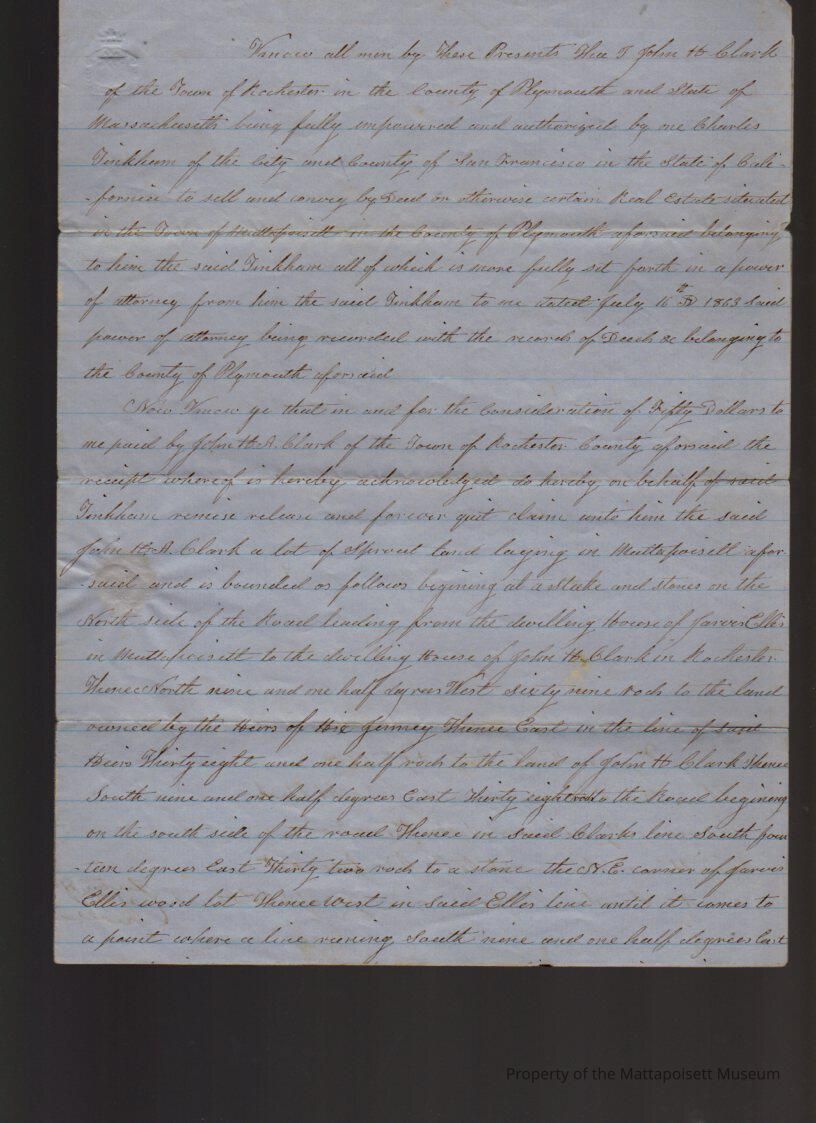 Know all men by These Presents That I John H Clark
of the Town of Rochester in the County of Plymouth and State of
Massachusetts being fully empowered and authorized by one Charles
Tinkham of the City and County of San Francisco in the State of Cali-
-fornia to sell and convey by Deed or otherwise certain Real Estate situated
in the Town of Mattapoisett in the County of Plymouth aforsaid belonging
to him the said Tinkham all of which is more fully set forth in a power
of attorney from him the said Tinkham to me dated July 16th AD 1863 Said
power of attorney being recorded with the records of Deeds &c belonging to
the County of Plymouth aforsaid
Now Know ye that in and for the Consideration of Fifty Dollars to
me paid by John H. A. Clark of the Town of Rochester County aforsaid the
receipt whereof is hereby acknowledged do hereby on behalf of said
Tinkham remise release and forever quit claim unto him the said
John H. A. Clark a lot of Sprout land laying in Mattapoisett afor-
-said and is bounded as follows begining at a stake and stones on the
North side of the Road leading from the dwelling House of Jarvis Ellis
in Mattapoisett to the dwelling House of John H. Clark in Rochester
Thence North nine and one half degrees West sixty nine rods to the land
owned by the Heirs of Jenney Thence East in the line of said
Heirs Thirty eight and one half rods to the land of John H Clark Thence
South nine and one half degrees East Thirty eight rods to the Road begining
on the south side of the road Thence in said Clarks line South four
-teen degrees East Thirty two rods to a stone the N. E. corner of Jarvis
Ellis wood lot Thence West in said Ellis line until it comes to
a point where a line runing South nine and one half degrees East
Property of the Mattapoisett Museum